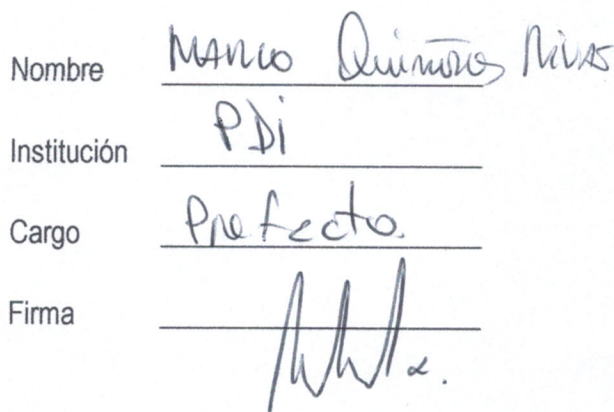 Nombre Marco Quiñones Rivas
Institución PDI
Cargo Prefecto.
Firma